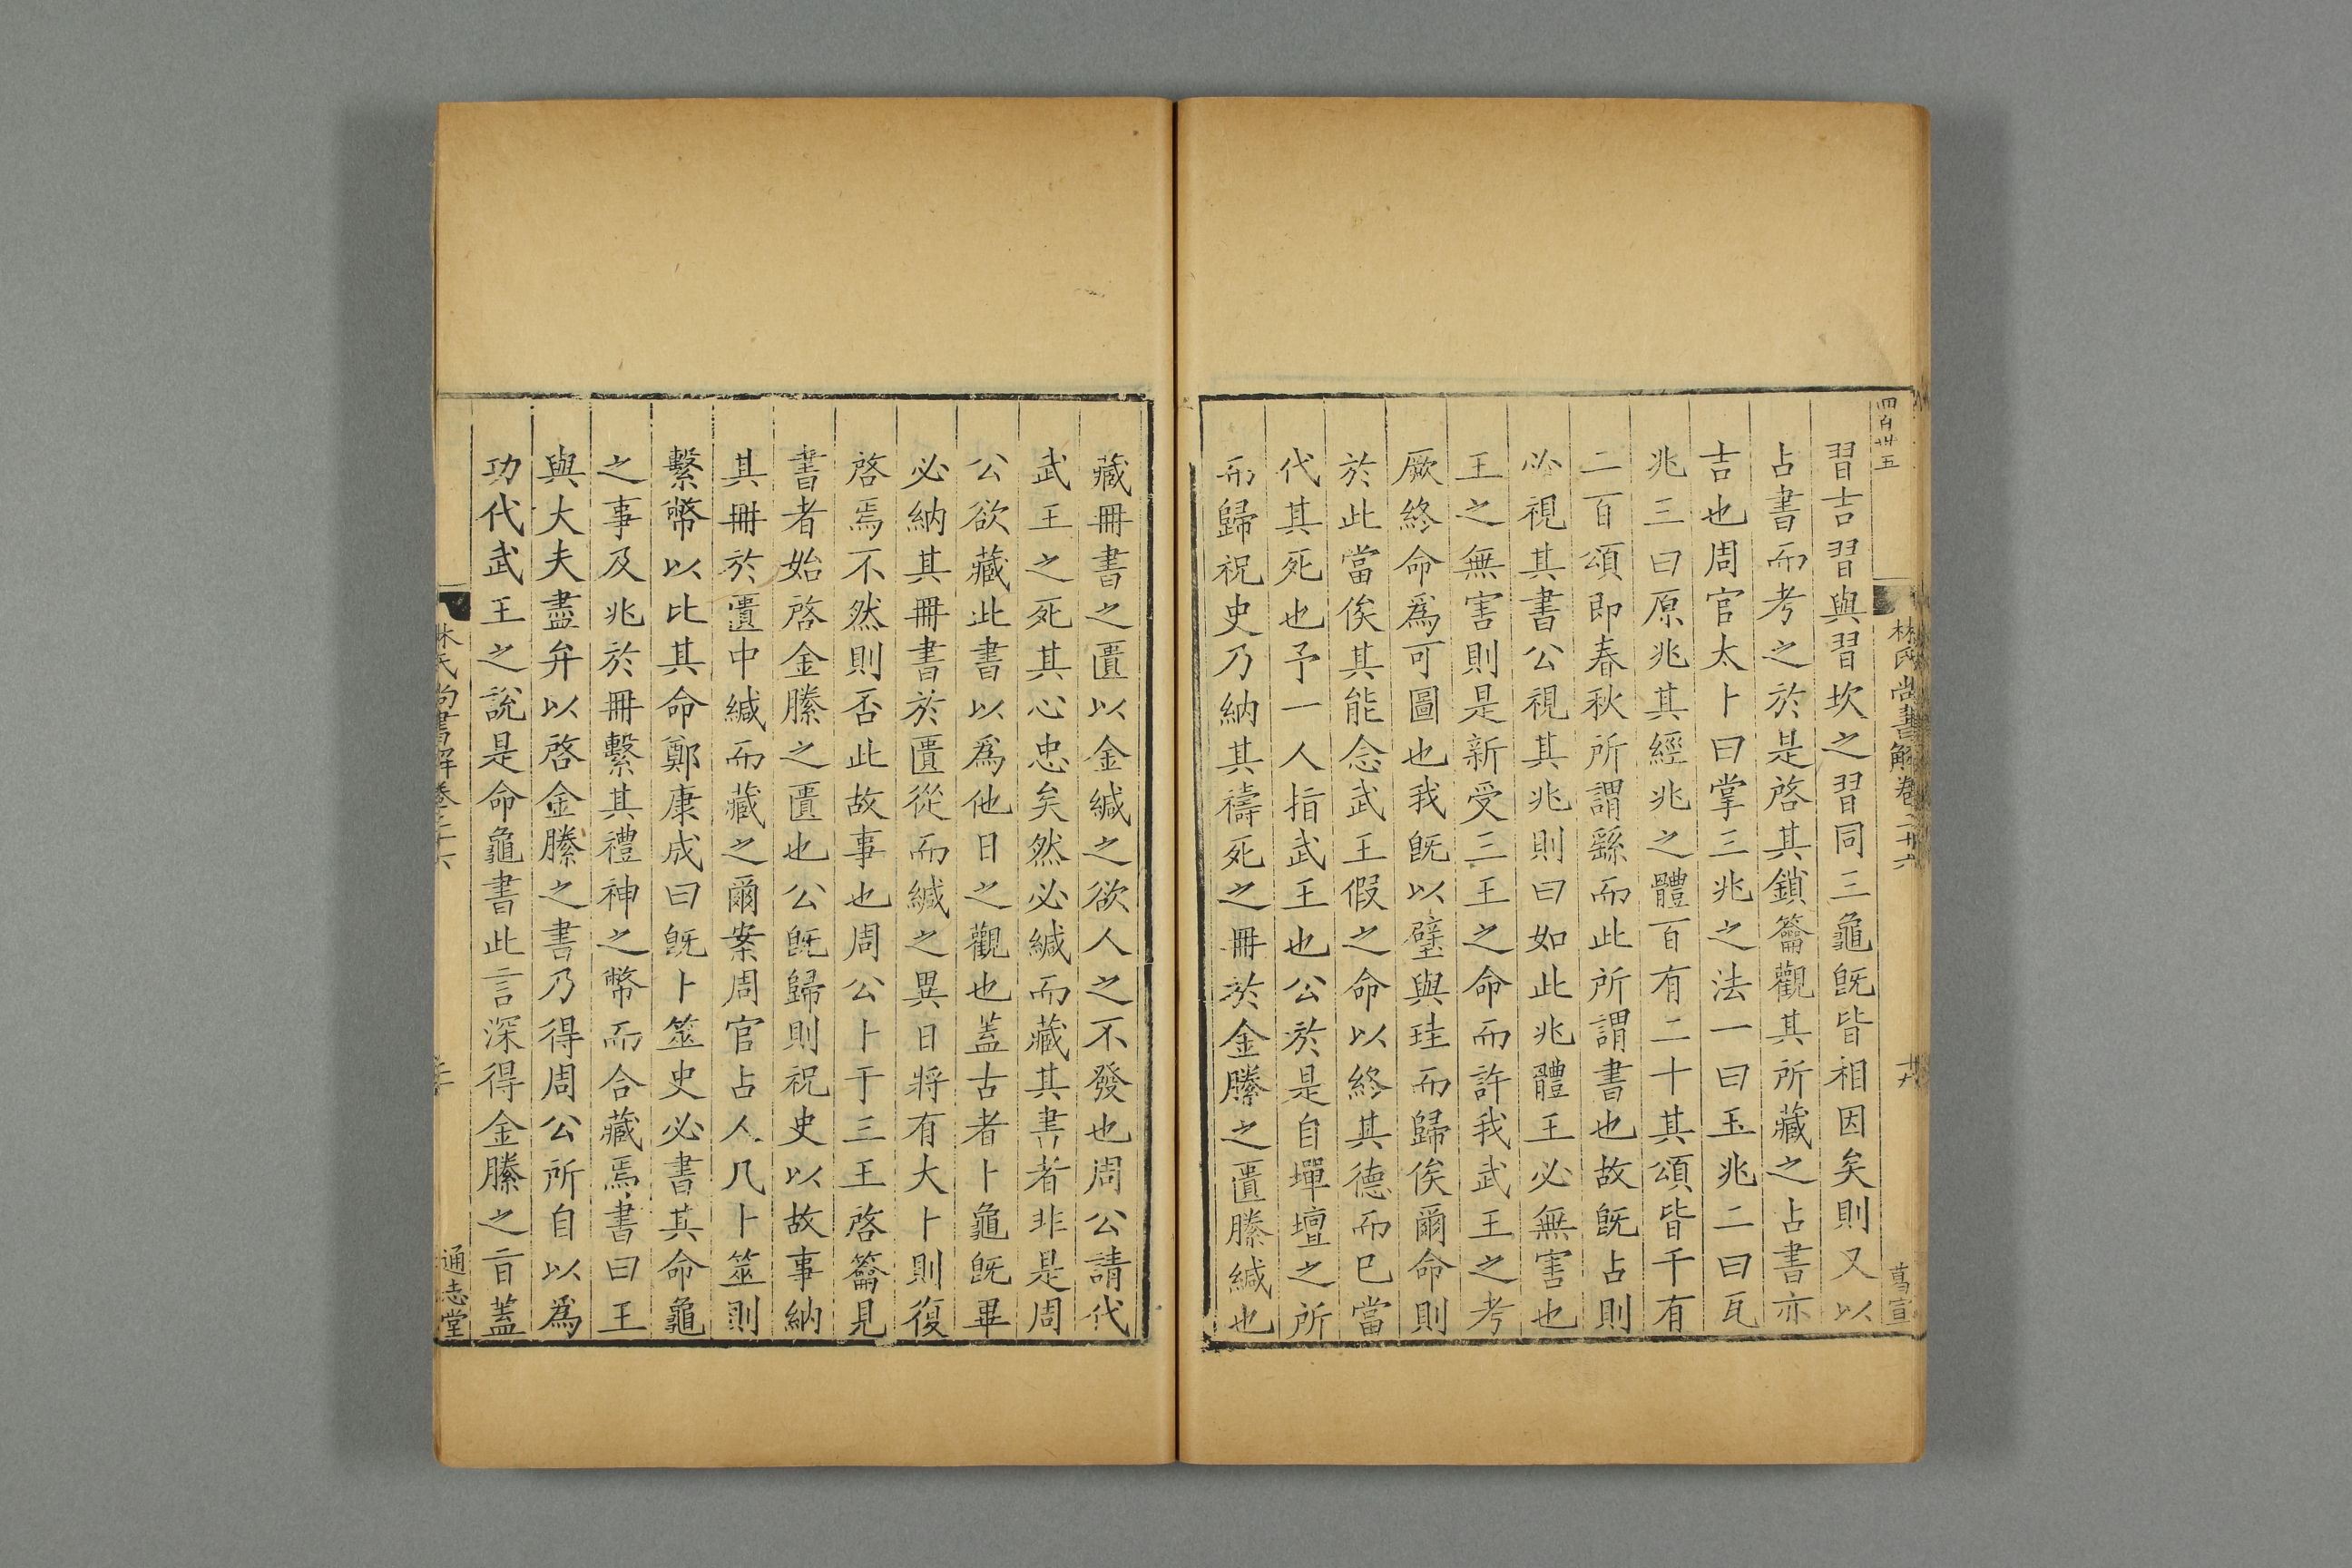 四百卅五
林氏尚書解卷二十六
十九
葛宣
習吉習與習坎之習同三龜旣皆相因矣則又以
占書而考之於是啓其鎖籥觀其所藏之占書亦
吉也周官太卜曰掌三兆之法一曰玉兆二曰瓦
兆三曰原兆其經兆之體百有二十其頌皆千有
二百頌即春秋所謂繇而此所謂書也故旣占則
必視其書公視其兆則曰如此兆體王必無害也
王之無害則是新受三王之命而許我武王之考
厥終命爲可圖也我旣以璧與珪而歸俟爾命則
於此當俟其能念武王假之命以終其德而巳當
代其死也予一人指武王也公於是自墠壇之所
而歸祝史乃納其禱死之冊於金縢之匱縢緘也
藏冊書之匱以金緘之欲人之不發也周公請代
武王之死其心忠矣然必緘而藏其書者非是周
公欲藏此書以爲他日之觀也蓋古者卜龜旣畢
必納其冊書於匱從而緘之異日將有大卜則復
啓焉不然則否此故事也周公卜于三王啓籥見
書者始啓金縢之匱也公旣歸則祝史以故事納
其冊於匱中緘而藏之爾案周官占人凡卜筮則
繫幣以比其命鄭康成曰旣卜筮史必書其命龜
之事及兆於冊繫其禮神之幣而合藏焉書曰王
與大夫盡弁以啓金縢之書乃得周公所自以爲
功代武王之說是命龜書此言深得金縢之㫖蓋
林氏尚書解卷二十六
二十
通志堂